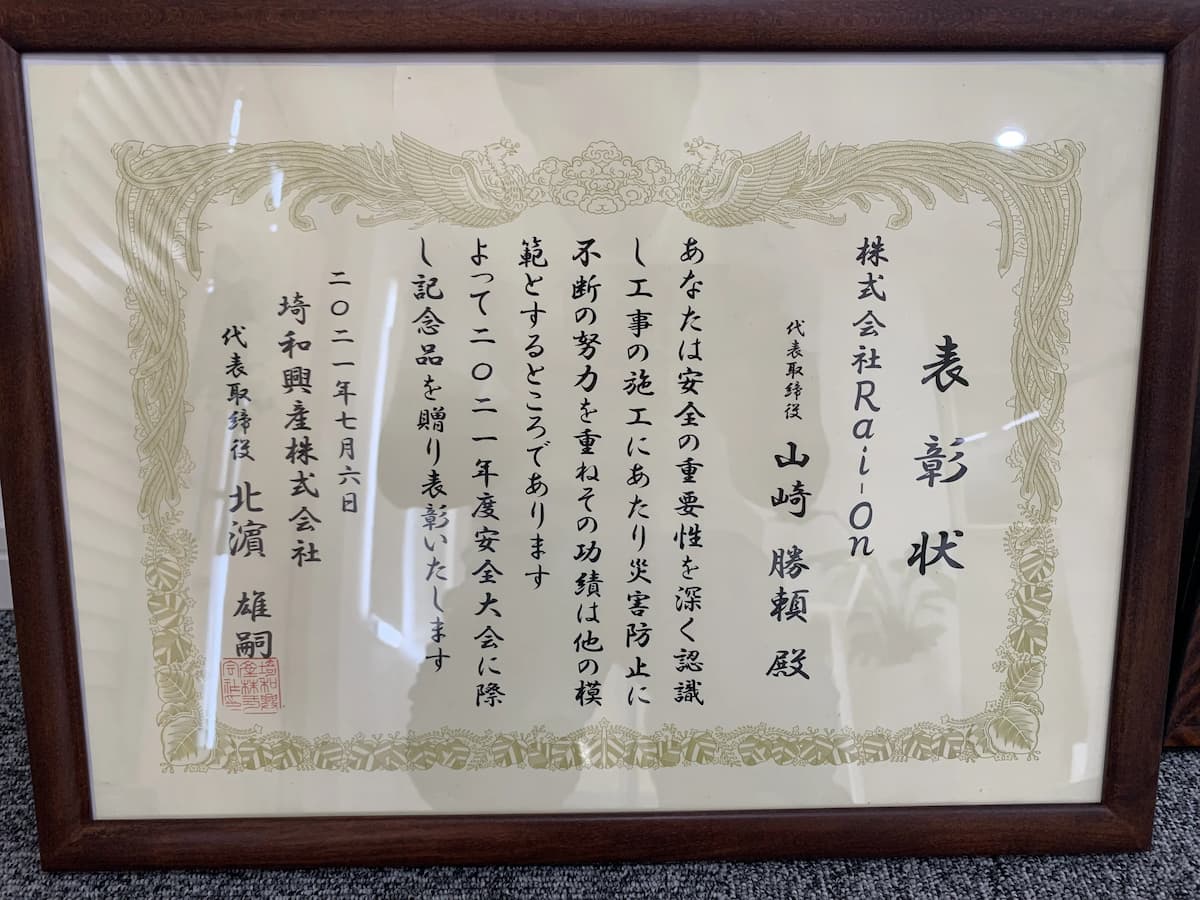 表彰状
株式会社Rai-On
代表取締役 山崎 勝頼 殿
あなたは安全の重要性を深く認識
し工事の施工にあたり災害防止に
不断の努力を重ねその功績は他の模
範とするところであります
よって二〇二一年度安全大会に際
し記念品を贈り表彰いたします
二〇二一年七月六日
埼和興産株式会社
代表取締役 北濵 雄嗣
埼和興
産株式
会社印